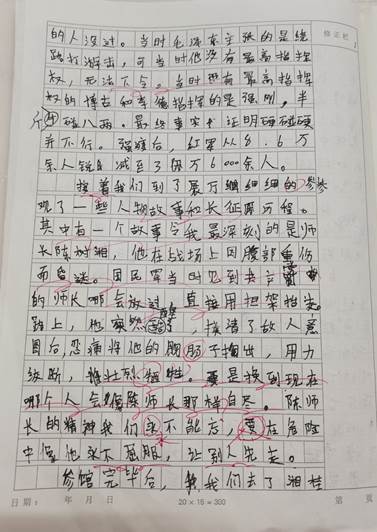 修正栏
的人没过。当时毛泽东主张的是绕
路打游击,可当时他没有最高指挥
权,无法下令。当时拥有最高指挥
权的博古和李德指挥的是强刚,半
斤碰八两。最终事实也证明硬碰硬
并不行。强渡后,红军从8.6万
余人锐减至了仅万6000余人。
接着我们到了展厅细细的参
观了一些人物故事和长征历程。
其中有一个故事令我最深刻的是师
长陈树湘,他在战场上因腹部重伤
而昏迷。国民军当时见到共
的师长哪会放过,直接用担架抬走。
路上,他突然,趁着敌人
,忍痛将他的肠子掏出,用力
绞断,惨壮烈牺牲。要是换到现在
哪个人会像陈师长那样自尽。陈师
长的精神我们永不能忘,要在危险
中像他永不屈服,让别人先走。
参馆完毕后,我们去了湘桂
日期: 年 月 日 20×15=300 第 页